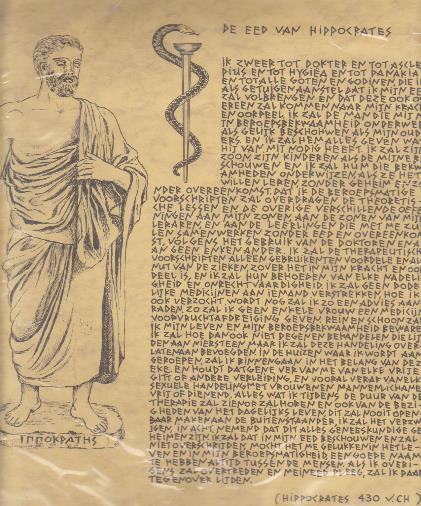 DE EED VAN HIPPOCRATES
IK ZWEER TOT DOKTER EN TOT ASCLE
PIUS EN TOT HYGIËA EN TOT PANAKIA
EN TOT ALLE GOTEN EN GODINEN, DIE IK
ALS GETUIGEN AANSTEL DAT IK MIJN EED
ZAL VOLBRENGEN EN DAT DEZE OOK O
EREEN ZAL KOMEN NAAR MIJN KRACHT
EN OORDEEL. IK ZAL DE MAN DIE MIJN
IN BEROEPSBEKWAAMHEID ONDERWEES
ALS GELIJK BESCHOUWEN ALS MIJN OUD
ERS. EN IK ZAL HEM ALLES GEVEN WAT
HIJ VAN MIJ NODIG HEEFT. IK ZAL ZIJN
ZOON, ZIJN KINDEREN ALS DE MIJNE BE
SCHOUWEN EN IK ZAL HUN DIE BEKW
AAMHEDEN ONDERWIJZEN ALS ZE HET
WILLEN LEREN ZONDER GEHEIM EN ZO
NDER OVEREENKOMST. DAT IK DE BEROEPSMATIGE
VOORSCHRIFTEN ZAL OVERDRAGEN DE THEORETIS
CHE LESSEN EN DE OVERIGE VERSCHILLENDE
NINGEN AAN MIJN ZONEN, AAN DE ZONEN VAN MIJN
LERAREN EN AAN DE LEERLINGEN DIE MET ME ZU
LEN SAMENWERKEN ZONDER EED EN OVEREENKO
ST, VOLGENS HET GEBRUIK VAN DE DOKTOREN EN A
AN GEEN ENKEN ANDER. IK ZAL DE THERAPEUTISCHE
VOORSCHRIFTEN ALLEEN GEBRUIKEN TEN VOORDELE EN
NUT VAN DE ZIEKEN ZOVER HET IN MIJN KRACHT EN OOR
DEEL IS, EN IK ZAL HUN BEHOEDEN VAN ELKE NADELI
GHEID EN ONRECHTVAARDIGHEID. IK ZAL GEEN DODE
LIJKE MEDICIJNEN AAN IEMAND VERSTREKKEN, HOE IK
OOK VERZOCHT WORDT, NOG ZAL IK ZO EEN ADVIES AAN
RADEN. ZO ZAL IK GEEN ENKELE VROUW EEN MEDICIJN
GEVEN. REIN EN SCHOON ZAL
IK MIJN LEVEN EN MIJN BEROEPSBEKWAAMHEID BEWAREN.
IK ZAL HOE DAN OOK NIET DEGENEN BEHANDELEN DIE LIJ
DEN AAN NIERSTEEN MAAR IK ZAL DEZE HANDELING OVER
LATEN AAN BEVOEGDEN. IN DE HUIZEN WAAR IK WORDT AAN
GEROEPEN ZAL IK BINNENGAAN IN HET BELANG VAN DE Z
IEKE. EN HOUDT DATGENE VER VAN ME VAN ELKE VRIJE
GIFT OF ANDERE VERLEIDING, EN VOORAL VERAF VAN ELKE
SEXUELE HANDELING MET VROUWEN EN MANNENLICHAMEN
VRIJ OF DIENEND. ALLES WAT IK TIJDENS DE DUUR VAN DE
THERAPIE ZAL ZIEN OF ZAL HOREN EN OOK VAN DE BEZI
GHEDEN VAN HET DAGELIJKS LEVEN, DIT ZAL NOOIT OPEN
BAAR MAKEN AAN DE BUITENSTAANDER, IK ZAL HET VERZW
IJGEN, IN ACHT NEMEND DAT DIT ALLES GENEESKUNDIGE GE
HEIMEN ZIJN. IK ZAL DAT IN MIJN EED BESCHOUWEN EN ZAL
NIET OVERSCHRIJDEN. MOCHT HET ME GELUKKEN IN HET LE
VEN EN IN MIJN BEROEPSMATIGHEID EEN GOEDE NAAM
TE HEBBEN ALTIJD TUSSEN DE MENSEN. ALS IK OVERI
GENS ZAL OVERTREDEN EN MEINEED PLEEG, ZAL IK DAAR
TEGENOVER LIJDEN.
ΙΠΠΟΚΡΑΤΗΣ
(HIPPOCRATES 430 V. CH)